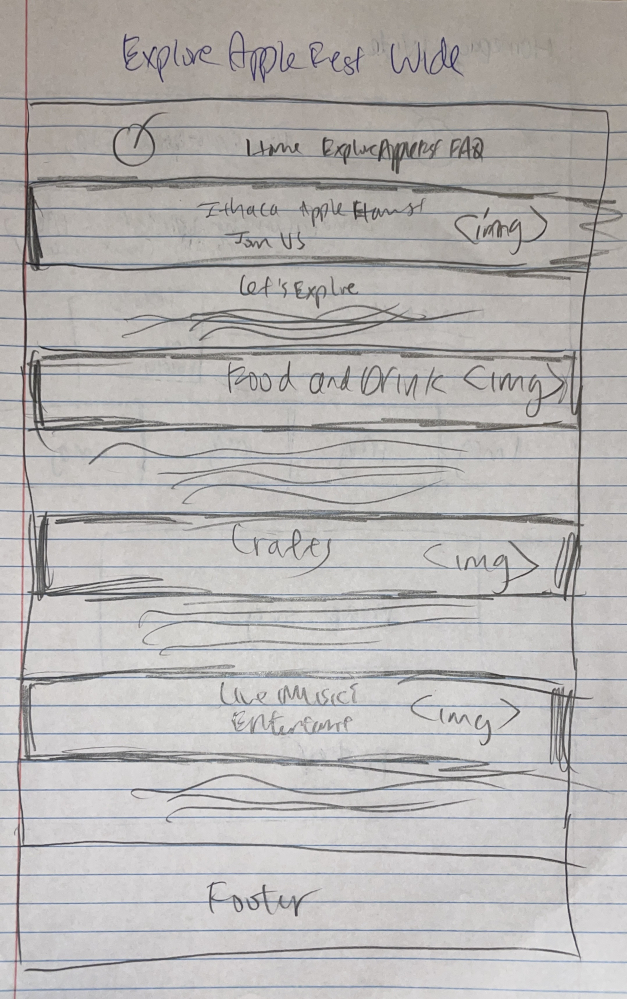 Explore Apple Fest Wide
Home Explore Applefest FAQ
Ithaca Apple Harvst
Join US
<img>
Let's Explre
Food and Drink <img>
Crafts
<img>
Live Music &
Entertainmt
<img>
Footer